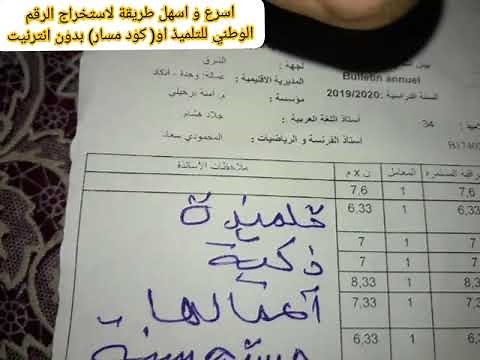 اسرع و اسهل طريقة لاستخراج الرقم
الوطني للتلميذ او( كود مسار) بدون انترنيت
الشرق
لجهة :
Bulletin annuel
عمالة: وجدة - أنكاد
المديرية الاقليمية :
السنة الدراسية: 2019/2020
مؤسسة :
جلاد هشام
أستاذ اللغة العربية :
34
المحمودي سعاد
استاذ الفرنسة و الرياضيات :
ملاحظات الأساتذة
ن x م
المعامل
راقبة المستمرة
7,6 1 7,6
6,33 1 6,33
7 1 7
7 1 7
8,33 1 8,33
7,33 1 7,33
6,33 1
تلميذة
ذكية
أعمالها